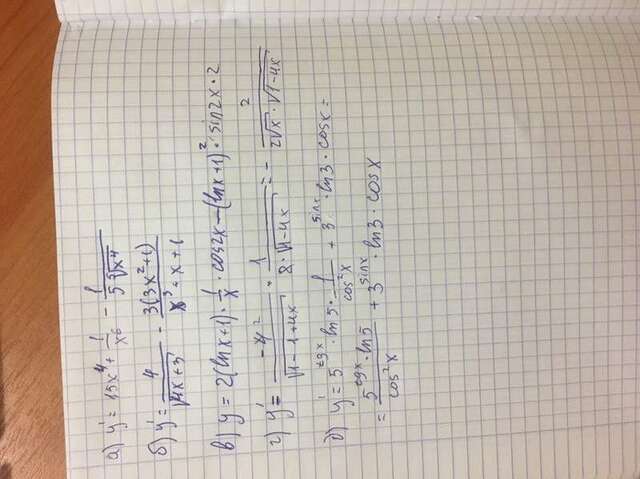 а) y' = 15x⁴ + 1/x⁶ - 1/(5⁵√x⁴)
б) y' = 4/√(4x+3) - 3(3x²+1)/(x³+x+1)
в) y' = 2(lnx+1) · 1/x · cos2x - (lnx+1)² · sin2x · 2
г) y' = -4²/√(1-1+4x) · 1/(2·√(1-4x)) = - 2/(2√x · √(1-4x))
д) y' = 5^tgx · ln5 · 1/cos²x + 3^sinx · ln3 · cosx =
= 5^tgx · ln5/cos²x + 3^sinx · ln3 · cosx